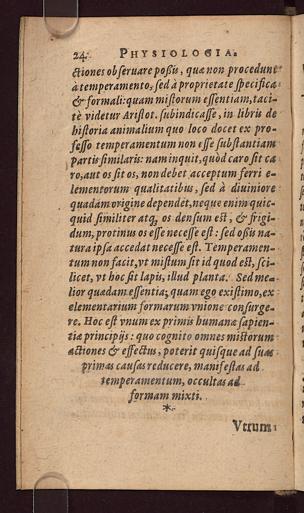 24. PHYSIOLOGIA.
ctiones obseruare poßis, quæ non procedunt
à temperamento, sed à proprietate specifica
& formali: quam mistorum essentiam, taci-
tè videtur Aristot. subindicasse, in libris de
historia animalium quo loco docet ex pro-
fesso temperamentum non esse substantiam
partis similaris: nam inquit, quòd caro sit ca
ro, aut os sit os, non debet acceptum ferri e-
lementorum qualitatibus, sed à diuiniore
quadam origine dependet, neque enim quic-
quid similiter atq, os densum est, & frigi-
dum, protinus os esse necesse est: sed oßis na
tura ipsa accedat necesse est. Temperamen-
tum non facit, vt mistum sit id quod est, sci-
licet, vt hoc sit lapis, illud planta. Sed me-
lior quædam essentia; quam ego existimo, ex
elementarium formarum vnione consurge-
re. Hoc est vnum ex primis humanæ sapien-
tiæ principijs: quo cognito omnes mistorum
actiones & effectus, poterit quisque ad suas
primas causas reducere, manifestas ad
temperamentum, occultas ad
formam mixti.
*
Verum